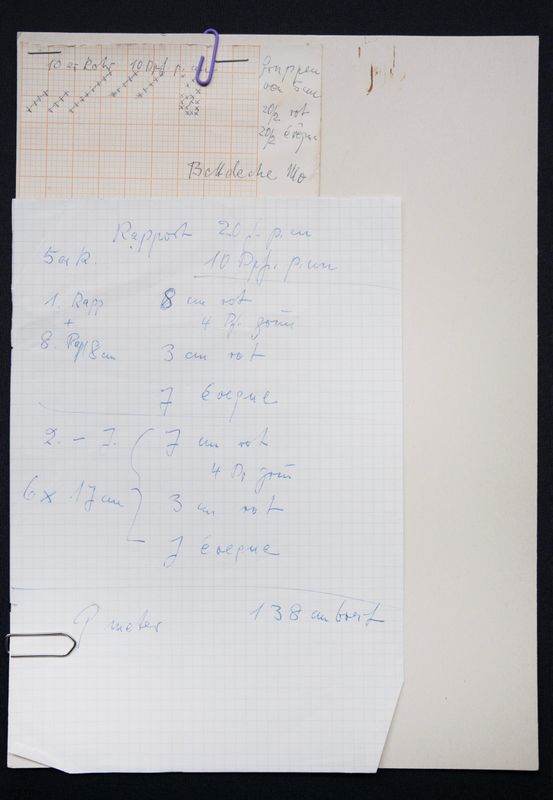 10 er Rohr 10 Dpf. p. cm
Gruppen
von 6 cm
20/2 rot
20/2 évegne
Bettdecke Mo
Rapport 20 f. p. cm
5 er R. 10 Dpf. p. cm
1. Rapp 8 cm rot
+ 4 Pf. grün
8. Rapp 8 cm 3 cm rot
7 évegne
2. - 7. 7 cm rot
4 Pf grün
6 x 17 cm 3 cm rot
7 évegne
meter 138 cm breit